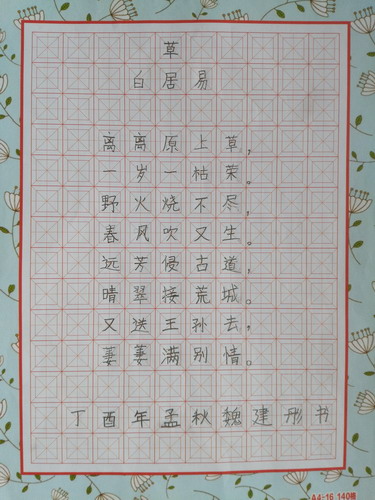 草
白居易
离离原上草，
一岁一枯荣。
野火烧不尽，
春风吹又生。
远芳侵古道，
晴翠接荒城。
又送王孙去，
萋萋满别情。
丁酉年孟秋魏建彤书
A4-15 140格